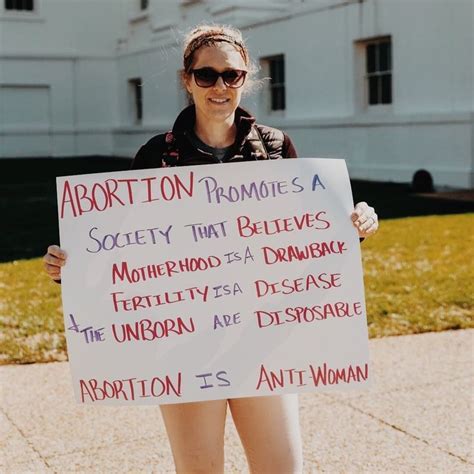 ABORTION PROMOTES A
SOCIETY THAT BELIEVES
MOTHERHOOD IS A DRAWBACK
FERTILITY IS A DISEASE
+ THE UNBORN ARE DISPOSABLE
ABORTION IS ANTI-WOMAN